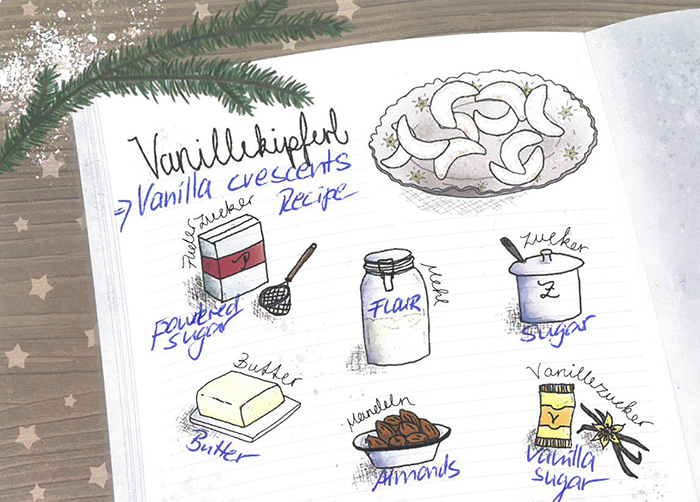 Vanillekipferl
⇒ Vanilla crescents
Recipe
Puderzucker
P
powdered
sugar
Mehl
FLOUR
Zucker
Z
sugar
Butter
Butter
Mandeln
Almonds
Vanillezucker
V
Vanilla
sugar